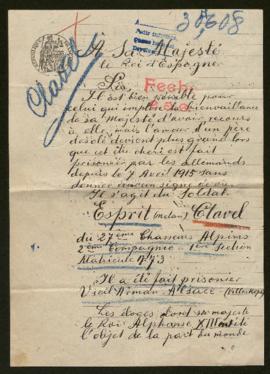 30608
A Sa Majesté
le Roi d'Espagne
Clavel
Sire
Il est bien pénible pour
celui qui implore la bienveillance
de sa Majesté d'avoir recours
à elle, mais l'amour d'un père
désolé devient plus grand lors
que et du choix est fait
prisonier par les allemands
depuis le 7 Avril 1915 sans
donner aucun signe de vie
Il s'agit du Soldat
Esprit Clavel
du 27ème Chasseurs Alpins
2ème Compagnie 1ère Section
Matricule 473
Il a été fait prisonier
Vieil Arman Alsace
Les éloges dont sa majesté
le Roi Alphonse XIII
l'objet de la part du monde